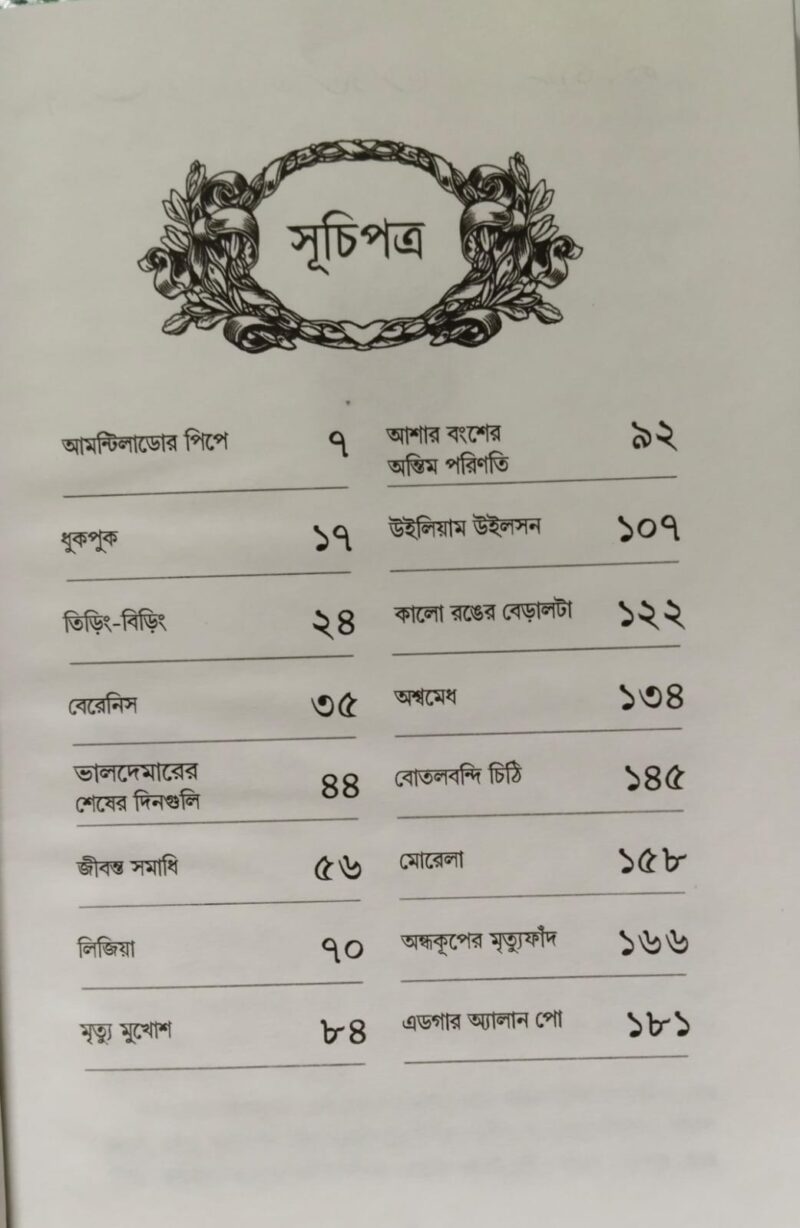 সূচিপত্র
আমন্টিলাডোর পিপে ৭
ধুকপুক ১৭
তিড়িং-বিড়িং ২৪
বেরেনিস ৩৫
ভালদেমারের
শেষের দিনগুলি ৪৪
জীবন্ত সমাধি ৫৬
লিজিয়া ৭০
মৃত্যু মুখোশ ৮৪
আশার বংশের ৯২
অন্তিম পরিণতি
উইলিয়াম উইলসন ১০৭
কালো রঙের বেড়ালটা ১২২
অশ্বমেধ ১৩৪
বোতলবন্দি চিঠি ১৪৫
মোরেলা ১৫৮
অন্ধকূপের মৃত্যুফাঁদ ১৬৬
এডগার অ্যালান পো ১৮১